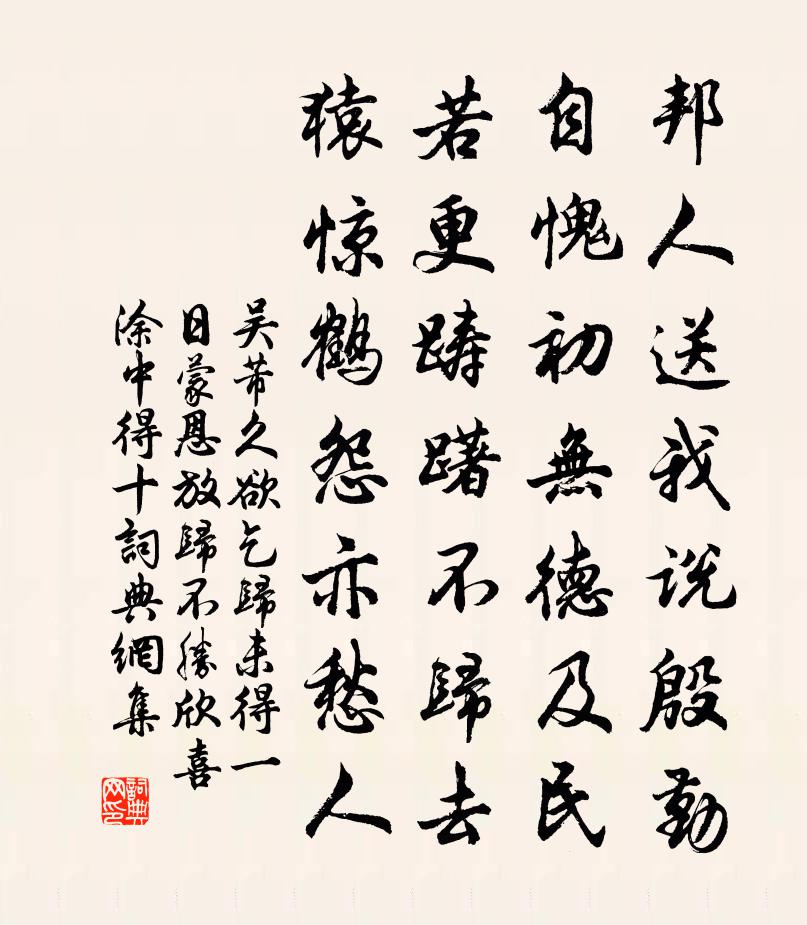 邦人送我说殷勤
自愧初無德及民
若更踌躇不歸去
猿惊鶴怨亦愁人
吴芾久欲乞歸未得一
日蒙恩放歸不勝欣喜
涂中得十詞典網集
詞典
网印